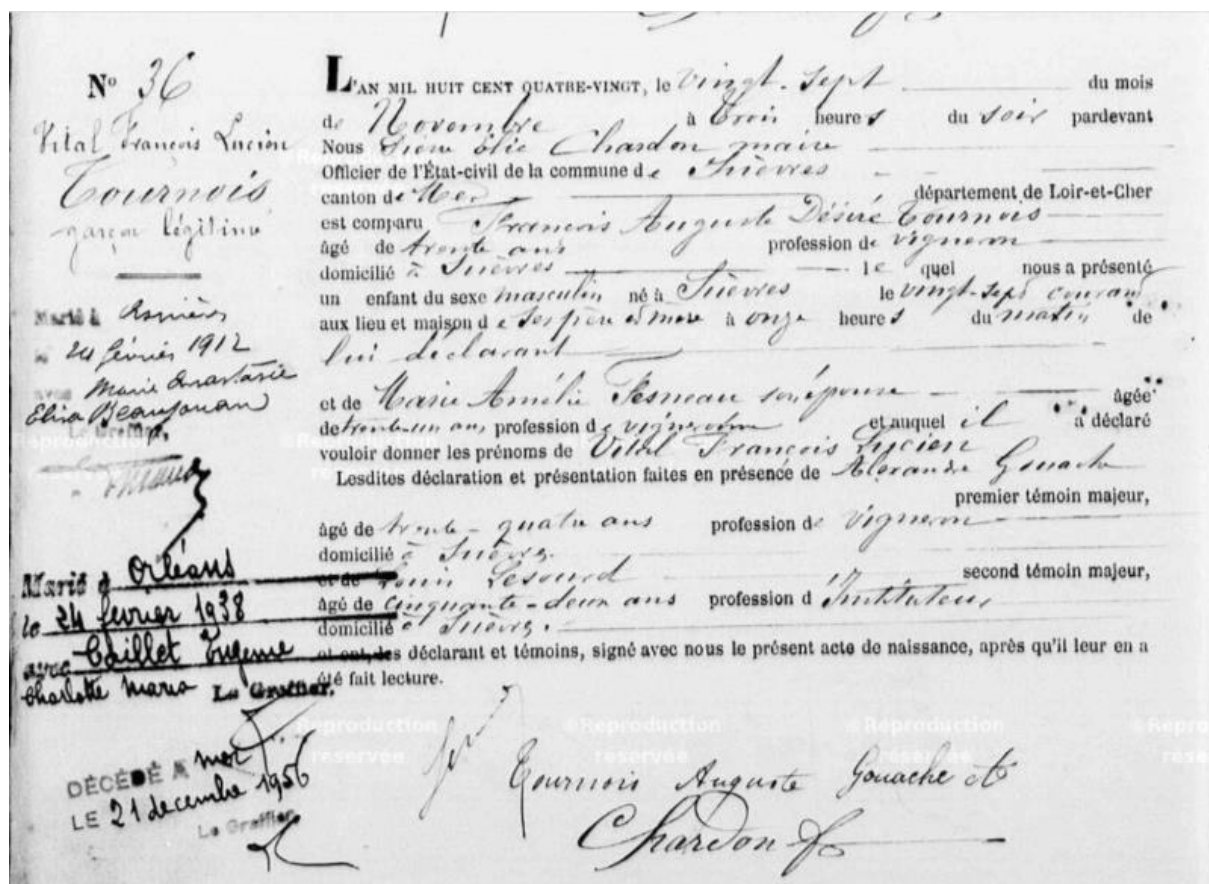 N° 36
Vital François Lucien
Tournois
garçon légitime
Marié à Asnières
le 24 février 1912
avec Marie Anastasie
Elisa Beaujouan
Le Greffier,
Marié à Orléans
le 24 février 1938
avec Caillet Eugenie
Charlotte Maria Le Greffier.
DÉCÉDÉ A Mer
LE 21 decembre 1956
Le Greffier
L'AN MIL HUIT CENT QUATRE-VINGT, le vingt-sept du mois
de Novembre à trois heures du soir pardevant
Nous Chardon maire
Officier de l'État-civil de la commune de Suèvres
canton de Mer département de Loir-et-Cher
est comparu François Auguste Désiré Tournois
âgé de trente ans profession de vigneron
domicilié à Suèvres lequel nous a présenté
un enfant du sexe masculin né à Suèvres le vingt-sept courant
aux lieu et maison de ses père et mère à onze heures du matin de
lui déclarant
et de Marie Amélie son épouse âgée
de trente un ans profession de vigneronne et auquel il a déclaré
vouloir donner les prénoms de Vital François Lucien
Lesdites déclaration et présentation faites en présence de Alexandre Gouache
premier témoin majeur,
âgé de trente-quatre ans profession de vigneron
domicilié à Suèvres.
et de Louis Lesourd second témoin majeur,
âgé de cinquante-deux ans profession d'Instituteur
domicilié à Suèvres.
et ont, les déclarant et témoins, signé avec nous le présent acte de naissance, après qu'il leur en a
été fait lecture.
©Reproduction reservée
Tournois Auguste Gouache
Chardon